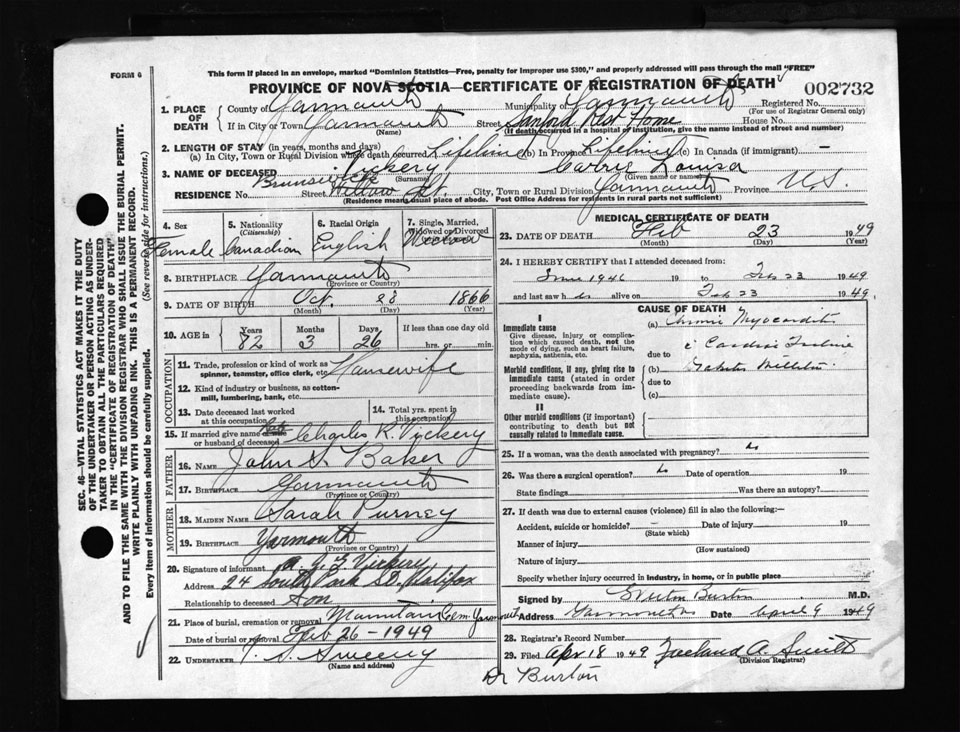 FORM 6
This form if placed in an envelope, marked "Dominion Statistics—Free, penalty for improper use $300," and properly addressed will pass through the mail "FREE"
PROVINCE OF NOVA SCOTIA—CERTIFICATE OF REGISTRATION OF DEATH
002732
1. PLACE OF DEATH County of Yarmouth Municipality of Yarmouth Registered No.
(For use of Registrar General only)
If in City or Town Yarmouth Street Sanford Rest Home House No.
(Name) (If death occurred in a hospital or institution, give the name instead of street and number)
2. LENGTH OF STAY (in years, months and days)
(a) In City, Town or Rural Division where death occurred Lifetime (b) In Province Lifetime (c) In Canada (if immigrant) —
3. NAME OF DECEASED Vickery Carrie Louisa
(Surname) (Given name or names)
RESIDENCE No. Brunswick Street Willow St. City, Town or Rural Division Yarmouth Province N.S.
(Residence means usual place of abode. Post Office Address for residents in rural parts not sufficient)
4. Sex Female
5. Nationality (Citizenship) Canadian
6. Racial Origin English
7. Single, Married, Widowed or Divorced Widow
8. BIRTHPLACE Yarmouth
(Province or Country)
9. DATE OF BIRTH Oct. 28 1866
(Month) (Day) (Year)
10. AGE in Years 82 Months 3 Days 26 If less than one day old
hrs. or min.
OCCUPATION
11. Trade, profession or kind of work as spinner, teamster, office clerk, etc. Housewife
12. Kind of industry or business, as cotton-mill, lumbering, bank, etc.
13. Date deceased last worked at this occupation
14. Total yrs. spent in this occupation
15. If married give name of wife or husband of deceased Charles R. Vickery
FATHER
16. NAME John S. Baker
17. BIRTHPLACE Yarmouth
(Province or Country)
MOTHER
18. MAIDEN NAME Sarah Purney
19. BIRTHPLACE Yarmouth
(Province or Country)
20. Signature of informant Vickery
Address 24 South Park St. Halifax
Relationship to deceased Son
21. Place of burial, cremation or removal Mountain Cem Yarmouth
Date of burial or removal Feb 26 - 1949
22. UNDERTAKER Sweeny
(Name and address)
MEDICAL CERTIFICATE OF DEATH
23. DATE OF DEATH Feb 23 1949
(Month) (Day) (Year)
24. I HEREBY CERTIFY that I attended deceased from:
June 1946 19 to Feb 23 1949
and last saw h er alive on Feb 23 1949
CAUSE OF DEATH
I
Immediate cause
Give disease, injury or complication which caused death, not the mode of dying, such as heart failure, asphyxia, asthenia, etc.
(a) Chronic Myocarditis
due to Cardiac Failure
Morbid conditions, if any, giving rise to immediate cause (stated in order proceeding backwards from immediate cause).
(b) Diabetes Mellitus
due to
(c)
II
Other morbid conditions (if important) contributing to death but not causally related to immediate cause.
25. If a woman, was the death associated with pregnancy? no
26. Was there a surgical operation? no Date of operation 19
State findings Was there an autopsy?
27. If death was due to external causes (violence) fill in also the following:—
Accident, suicide or homicide? Date of injury 19
(State which)
Manner of injury
(How sustained)
Nature of injury
Specify whether injury occurred in industry, in home, or in public place
Signed by Burton M.D.
Address Yarmouth Date April 9 1949
28. Registrar's Record Number
29. Filed Apr 18 1949 Freeland A. Smith
(Division Registrar)
Dr Burton
SEC. 46—VITAL STATISTICS ACT MAKES IT THE DUTY OF THE UNDERTAKER OR PERSON ACTING AS UNDERTAKER TO OBTAIN ALL THE PARTICULARS REQUIRED IN THE "CERTIFICATE OF REGISTRATION OF DEATH" AND TO FILE THE SAME WITH THE DIVISION REGISTRAR WHO SHALL ISSUE THE BURIAL PERMIT.
WRITE PLAINLY WITH UNFADING INK. THIS IS A PERMANENT RECORD.
Every item of information should be carefully supplied. (See reverse side for instructions.)